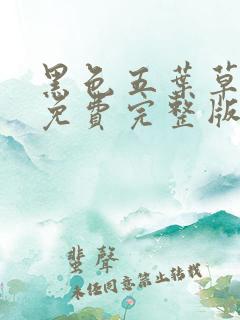 黑色五葉草
免費完整版
蜚聲
未任同意禁止转载